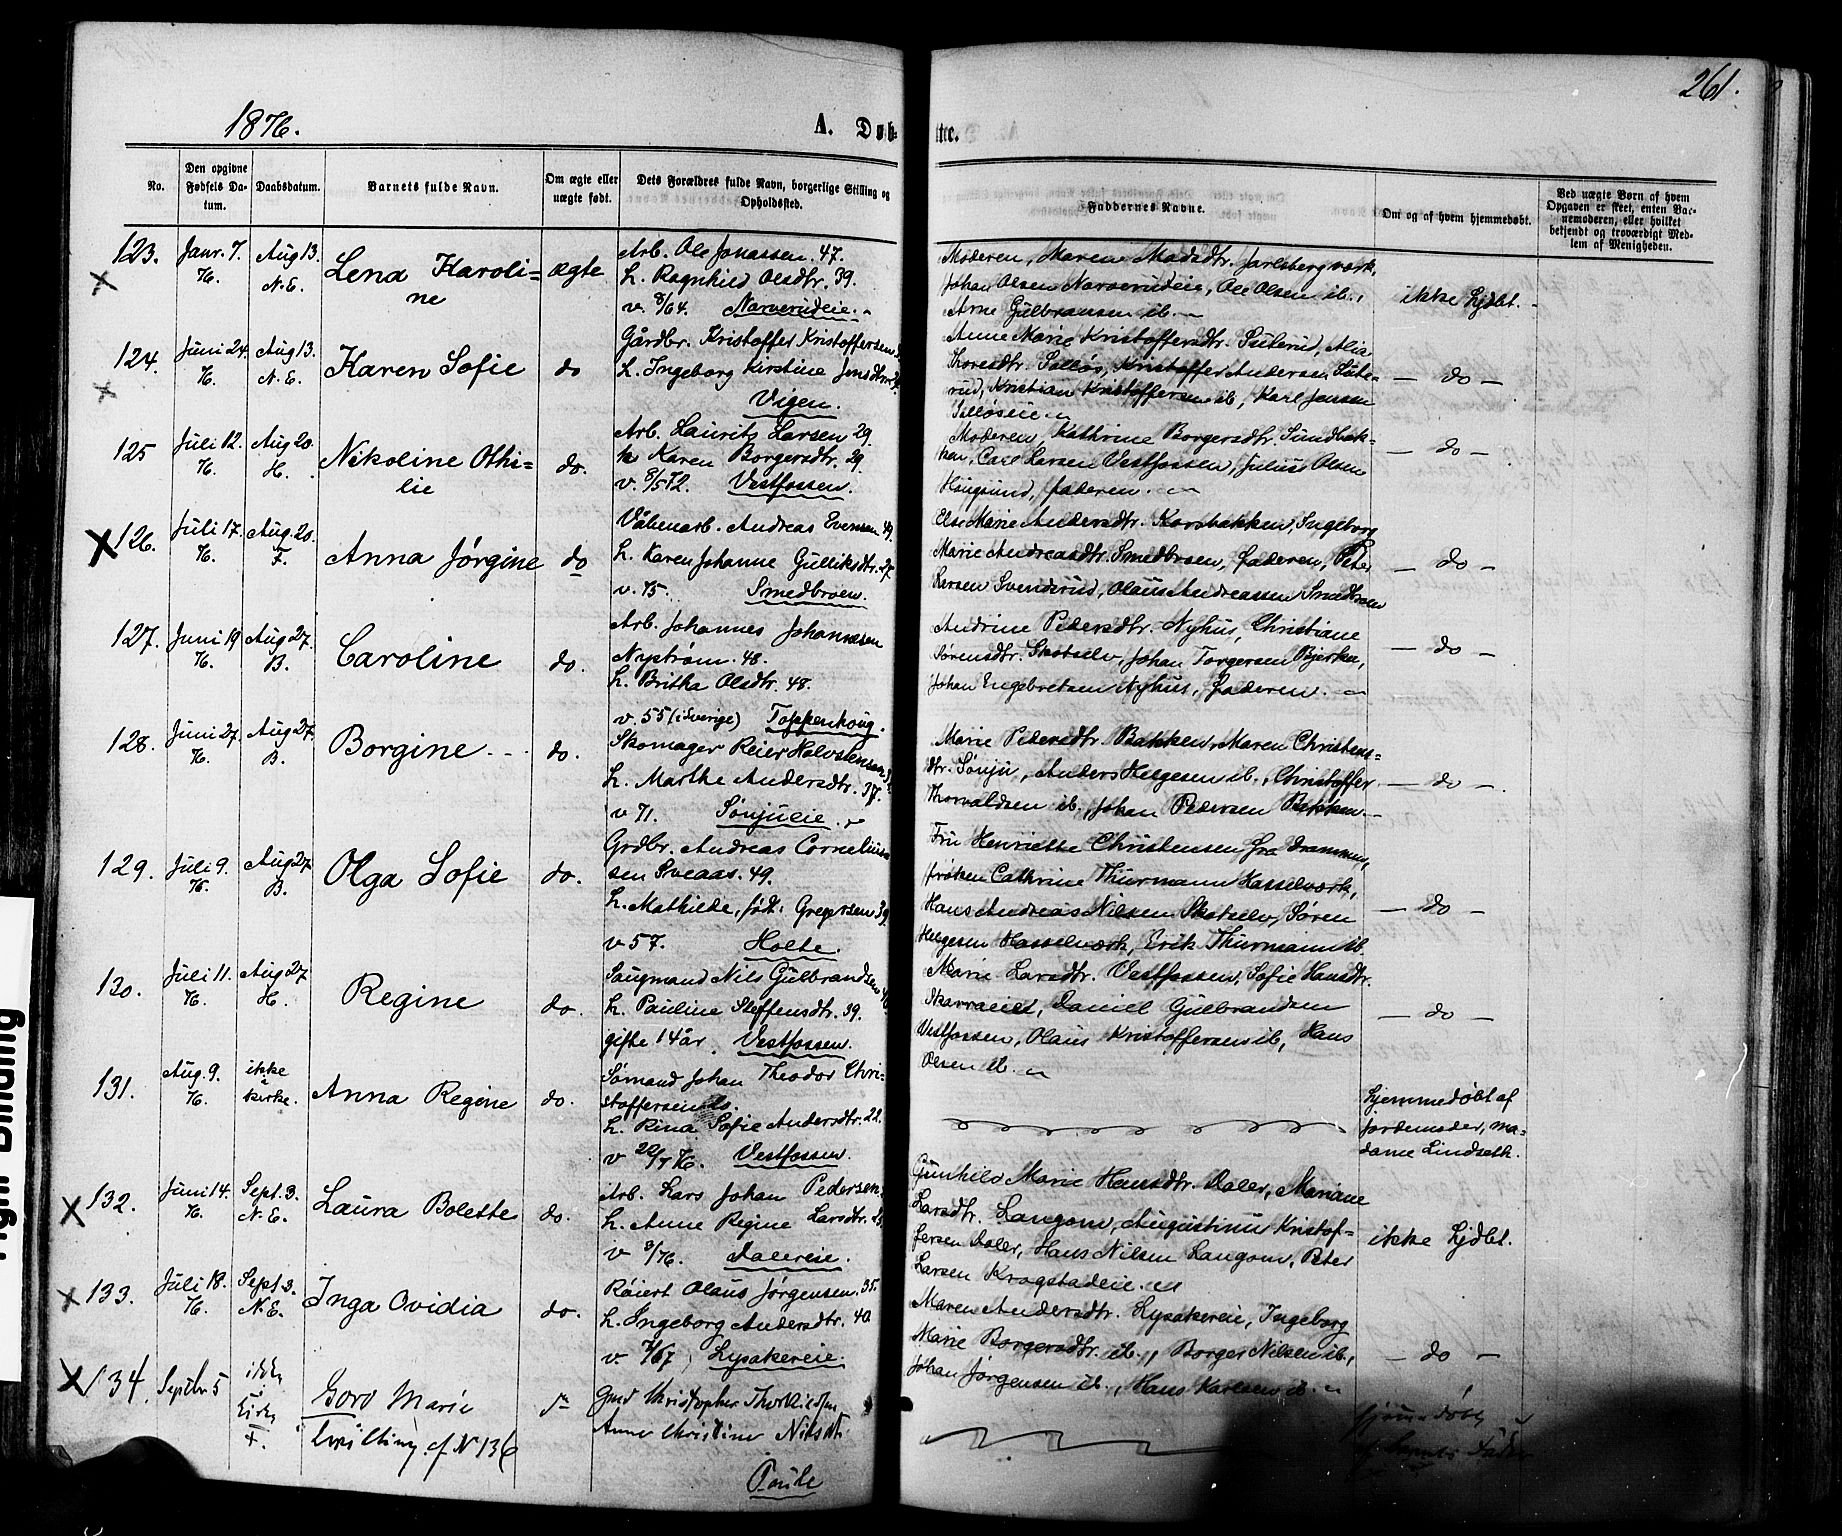 261.
1876.
A. Døb-
tte.
No.
Den opgivne Fødsels Da-tum.
Daabsdatum.
Barnets fulde Navn.
Om ægte eller uægte født.
Dets Forældres fulde Navn, borgerlige Stilling og Opholdssted.
Faddernes Navne.
Om og af hvem hjemmedøbt.
Ved uægte Børn af hvem Opgaven er skeet, enten Bar-nemoderen, eller hvilket betjendt og troværdigt Med-lem af Menigheden.
123. Janr. 7. H. Aug 13. N.E. Lena Karoli-
ne
ægte
Arb. Ole Jonassen 47.
h. Ragnhild Olsdtr. 39.
v. 8/64. Narverudeie.
Moderen, Maren Madsdtr. Jarlsbergværk,
Johan Olsen Narverudeie, Ole Olsen ib.,
Arne Gulbransen ib.
ikke hjdbt.
124. Juni 24. H. Aug 13. N.E. Karen Sofie do
Gårdbr. Kristoffer Kristoffersen
h. Ingeborg Kirstine Jensdtr.
Vigen.
Anne Marie Kristoffersdtr. Suterud,
Thoresdtr. Solløs, Kristoffer Andersen Sute-
rud, Kristian Kristoffersen ib, Karl Jensen
Solløseie
- do -
125 Juli 12. H. Aug 20. H. Nikoline Othi-
lie
do.
Arb. Laurits Larsen 29.
h. Karen Borgersdtr. 29.
v. 8/5 72. Vestfossen.
Moderen, Kathrine Borgersdtr. Sundbak-
ken, Carl Larsen Vestfossen, Julius Olsen
Hougsund, faderen.
- do -
X 126. Juli 17. H. Aug. 20. F. Anna Jørgine do
Våbenarb. Andreas Evensen 49.
h. Karen Johanne Gulliksdtr. 27
v. 75. Smedbroen.
Else Marie Andersdtr. Korsbakken, Ingeborg
Marie Andreasdtr. Smedbroen, faderen, Peter
Larsen Svendsrud, Olaus Andreassen Smedbroen
- do -
127. Juni 19 H. Aug 27. B. Caroline do.
Arb. Johannes Johannesen
Nystrøm. 48.
h. Britha Olsdtr. 48.
v. 55 (i Sverige) Toppenhoug.
Andrine Pedersdtr. Nyhus, Christiane
Sørensdtr. Skotselv, Johan Torgersen Bjerke,
Johan Engebretsen Nyhus, faderen.
- do -
128. Juni 27. H. Aug 27. B. Borgine do.
Skomager Reier Halvorsen
h. Marthe Andersdtr. 37.
v 71. Sønjueie.
Marie Pedersdtr. Bakken, Maren Christens-
dtr. Sønju, Anders Helgesen ib., Christoffer
Thorvaldsen ib, Johan Pedersen Bakken.
- do -
129. Juli 9. H. Aug 27 B. Olga Sofie do.
Grdbr. Andreas Cornelius-
sen Sveaas. 49.
h. Mathilde, født Gregersen 39
v 57. Holte.
Fru Henriette Christensen fra Drammen,
frøken Cathrine Thurmann Hasselværk,
Hans Andreas Nilsen Skotselv, Søren
Helgesen Hasselværk, Erik Thurmann ib.
- do -
130. Juli 11. H. Aug 27 H. Regine do.
Saugmand Nils Gulbrandsen
h. Pauline Steffensdtr. 39.
gifte 14 år. Vestfossen.
Marie Larsdtr. Vestfossen, Sofie Hansdtr.
Daniel Gulbrandsen
Vestfossen, Olaus Kristoffersen ib, Hans
Olsen ib.
- do -
131. Aug. 9. H. ikke i kirke. Anna Regine do.
Sømand Johan Theodor Chri-
stoffersen
h. Rina Sofie Andersdtr. 22.
v 22/7 76. Vestfossen.
hjemmedøbt af
jordemoder, ma-
dame Lindseth.
X 132. Juni 14. H. Sept. 3. N.E. Laura Bolette do.
Arb. Lars Johan Pedersen
h. Anne Regine Larsdtr.
v 3/76. Dalereie.
Gunhild Marie Hansdtr. Daler, Mariane
Larsdtr. Langom, Augustinus Kristof-
fersen Daler, Hans Nilsen Langom, Peter
Larsen Krogstadeie.
ikke hjdbt.
X 133. Juli 18. H. Sept 3. N.E. Inga Ovidia do.
Røiert Olaus Jørgensen. 35.
h. Ingeborg Andersdtr. 40
v. 7/67. Lysakereie.
Maren Andersdtr. Lysakereie, Ingeborg
Marie Borgersdtr. ib., Borger Nilsen ib.,
Johan Jørgensen ib., Hans Karlsen ib.
- do -
X 134. Septbr 5 ikke i Kirke +. Goro Marie
Tvilling cf N 136
Gmd Christopher Thorkildsen
Anne Christine Nilsdt
Poule
hjemmedøbt
af Barnets Fader